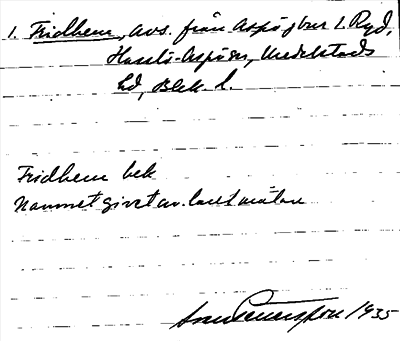 1. Fridhem, avs. från Aspö, 1 Ryd,
Hasslö-Aspö sn, Medelstads
hd, Blek. l.
Fridhem bek
Namnet givet av lantmätare
1935